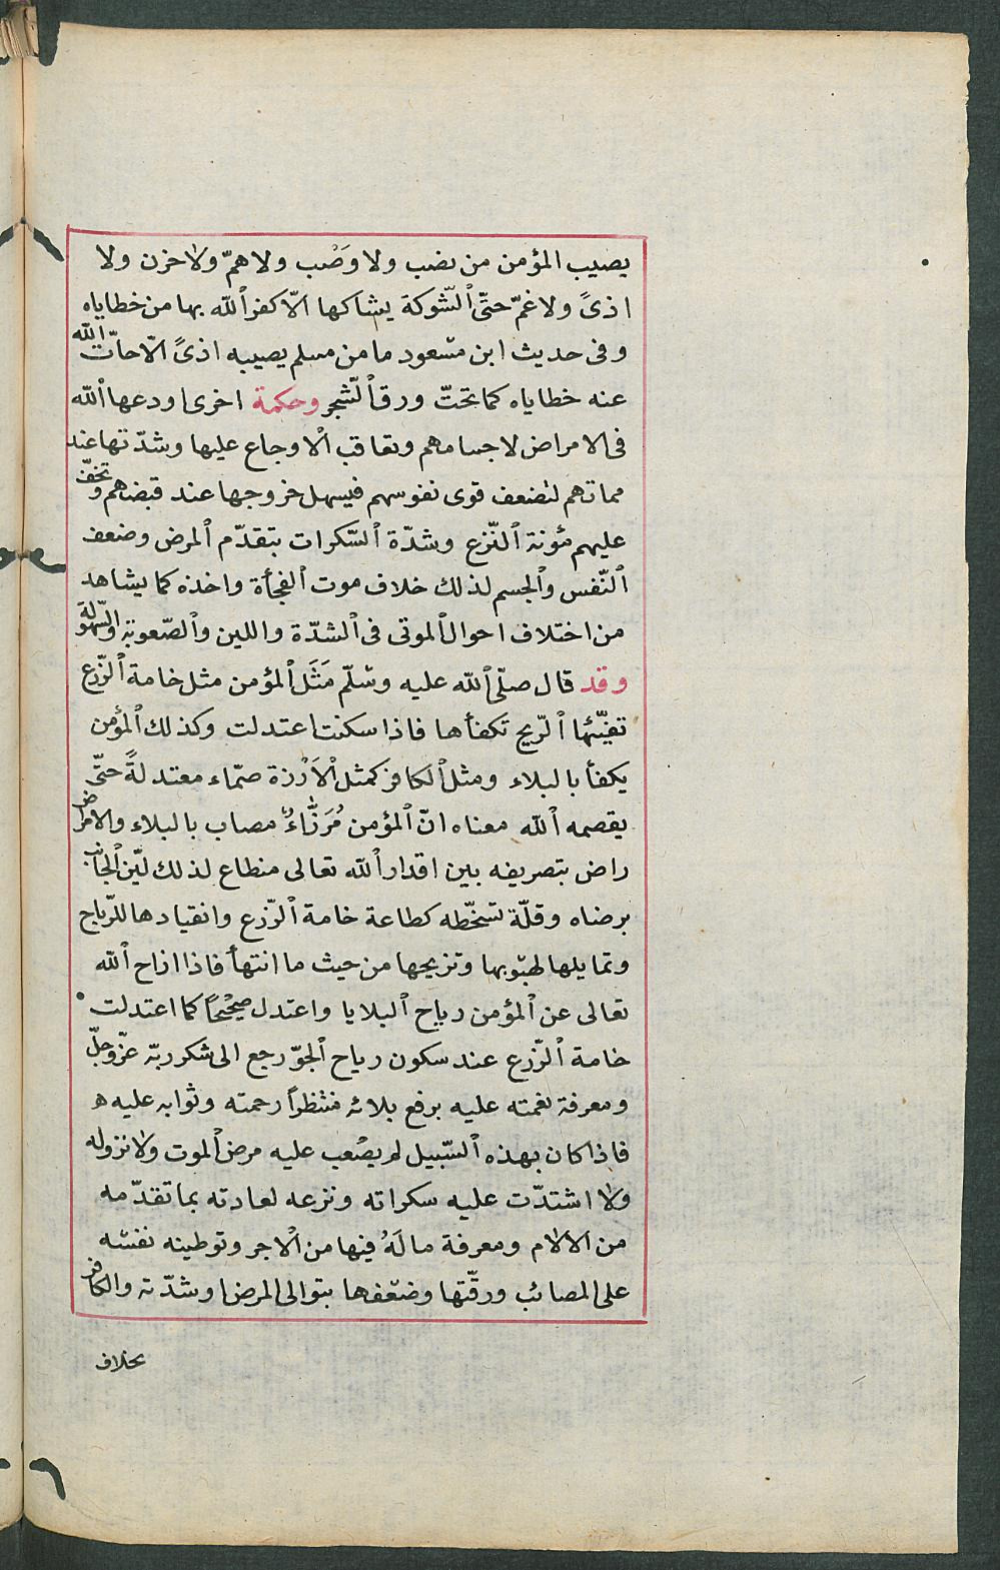 يصيب المؤمن من نصب ولا وَصْب ولا همّ ولا حزن ولا
اذىً ولا غمّ حتّى الشّوكة يشاكها الّا كفر الله بها من خطاياه
وفى حديث ابن مسعود ما من مسلم يصيبه اذىً الّا حاتّ الله
عنه خطاياه كما تحتّ ورق الشّجر وحكمة اخرى اودعها الله
فى الامراض لاجسامهم وتعاقب الاوجاع عليها وشدّتها عند
مماتهم لتضعف قوى نفوسهم فيسهل خروجها عند قبضهم وتخفّ
عليهم مئونة النّزع وشدّة السّكرات بتقدّم المرض وضعف
النّفس والجسم لذلك خلاف موت الفجأة واخذه كما يشاهد
من اختلاف احوال الموتى فى الشدّة واللين والصّعوبة والسّهولة
وقد قال صلّى الله عليه وسلّم مَثَل المؤمن مثل خامة الزّرع
تفيّئها الرّيح تكفأها فاذا سكنت اعتدلت وكذلك المؤمن
يكفأ بالبلاء ومثل الكافر كمثل الاَرْزة صمّاء معتدلةً حتّى
يقصمه الله معناه انّ المؤمن مُرَزَّاءٌ مصاب بالبلاء والامراض
راض بتصريفه بين اقدار الله تعالى منطاع لذلك ليّن الجانب
برضاه وقلّة تسخّطه كطاعة خامة الزّرع وانقيادها للرّياح
وتمايلها لهبوبها وتريحها من حيث ما انتهأ فاذا ازاح الله
تعالى عن المؤمن رياح البلايا واعتدل صحيحًا كما اعتدلت
خامة الزّرع عند سكون رياح الجوّ رجع الى شكر ربّه عزّ وجلّ
ومعرفة نعمته عليه برفع بلائه منتظرًا رحمته وثوابه عليه ه
فاذا كان بهذه السّبيل لم يصْعب عليه مرض الموت ولا نزوله
ولا اشتدّت عليه سكراته ونزعه لعادته بما تقدّمه
من الالام ومعرفة ما لَهُ فيها من الاجر وتوطينه نفسه
على المصائب ورقّتها وضعفها بتوالى المرض او شدّته والكافر
بخلاف